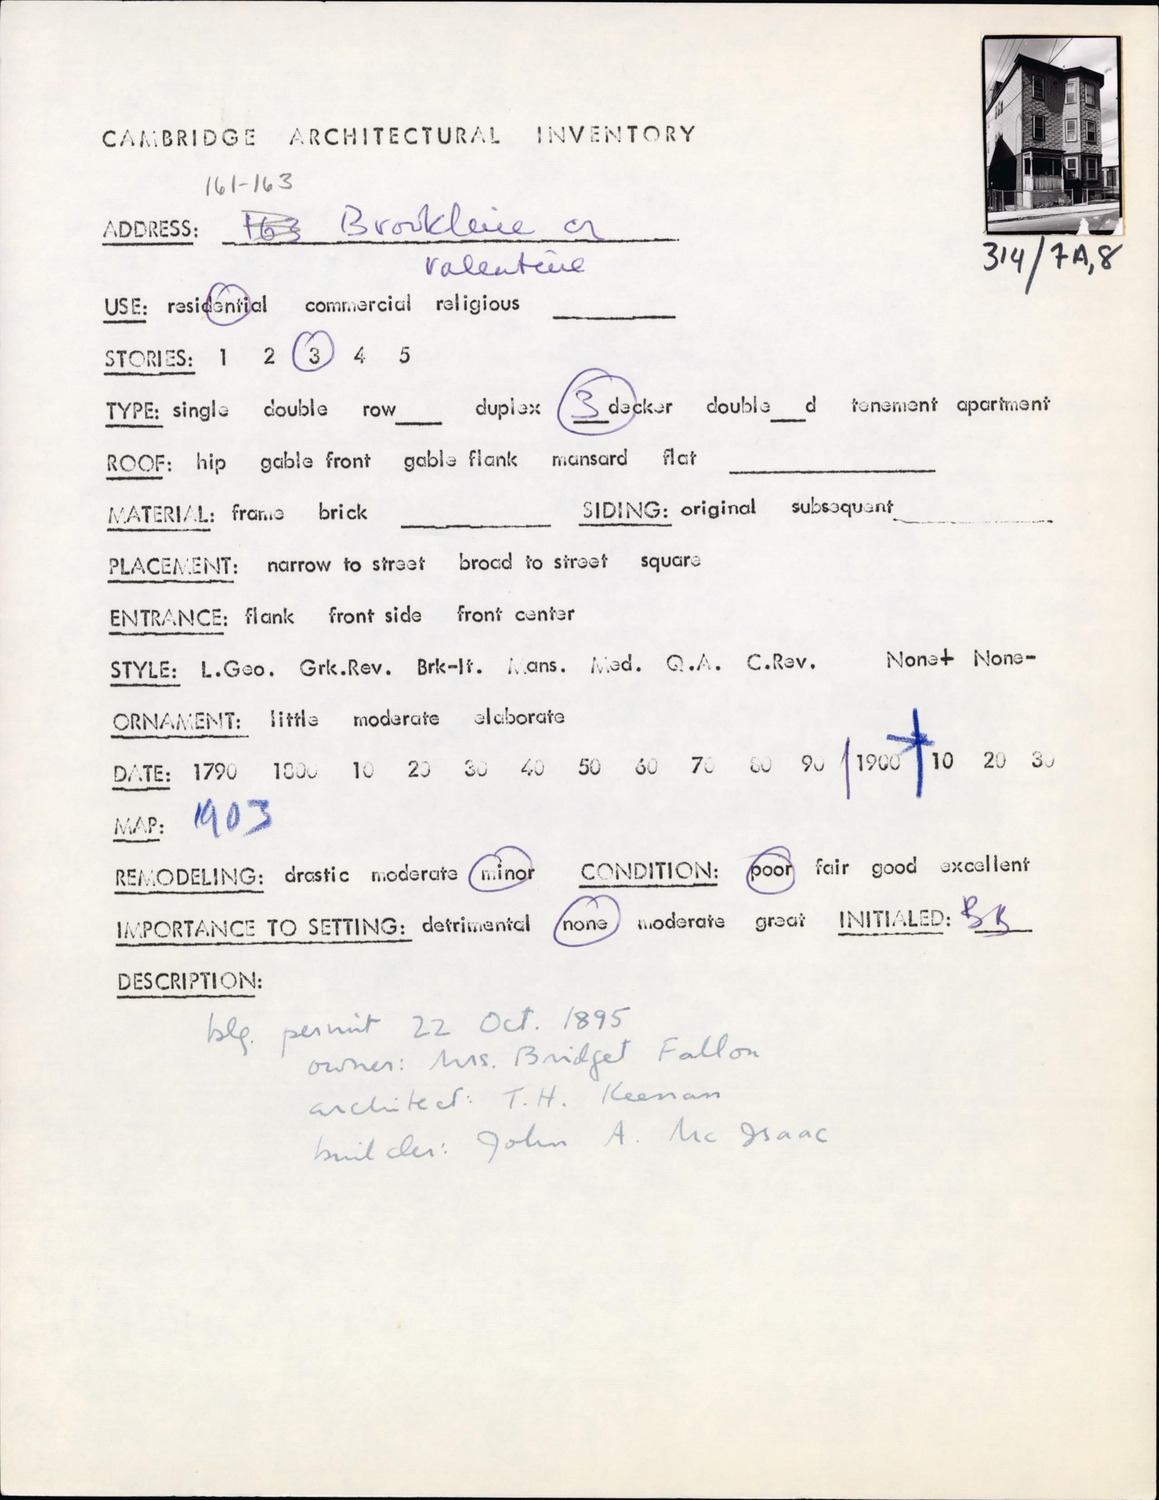 CAMBRIDGE ARCHITECTURAL INVENTORY
161-163
ADDRESS: 163 Brookline cn
Valentine
314/7A,8
USE: residential commercial religious
STORIES: 1 2 3 4 5
TYPE: single double row duplex 3 decker double d tenement apartment
ROOF: hip gable front gable flank mansard flat
MATERIAL: frame brick SIDING: original subsequent
PLACEMENT: narrow to street broad to street square
ENTRANCE: flank front side front center
STYLE: L.Geo. Grk.Rev. Brk-It. Mans. Med. Q.A. C.Rev. None+ None-
ORNAMENT: little moderate elaborate
DATE: 1790 1800 10 20 30 40 50 60 70 80 90 1900 10 20 30
MAP: 1903
REMODELING: drastic moderate minor CONDITION: poor fair good excellent
IMPORTANCE TO SETTING: detrimental none moderate great INITIALED: BB
DESCRIPTION:
blg. permit 22 Oct. 1895
owner: Mrs. Bridget Fallon
architect: T.H. Keenan
builder: John A. Mc Isaac